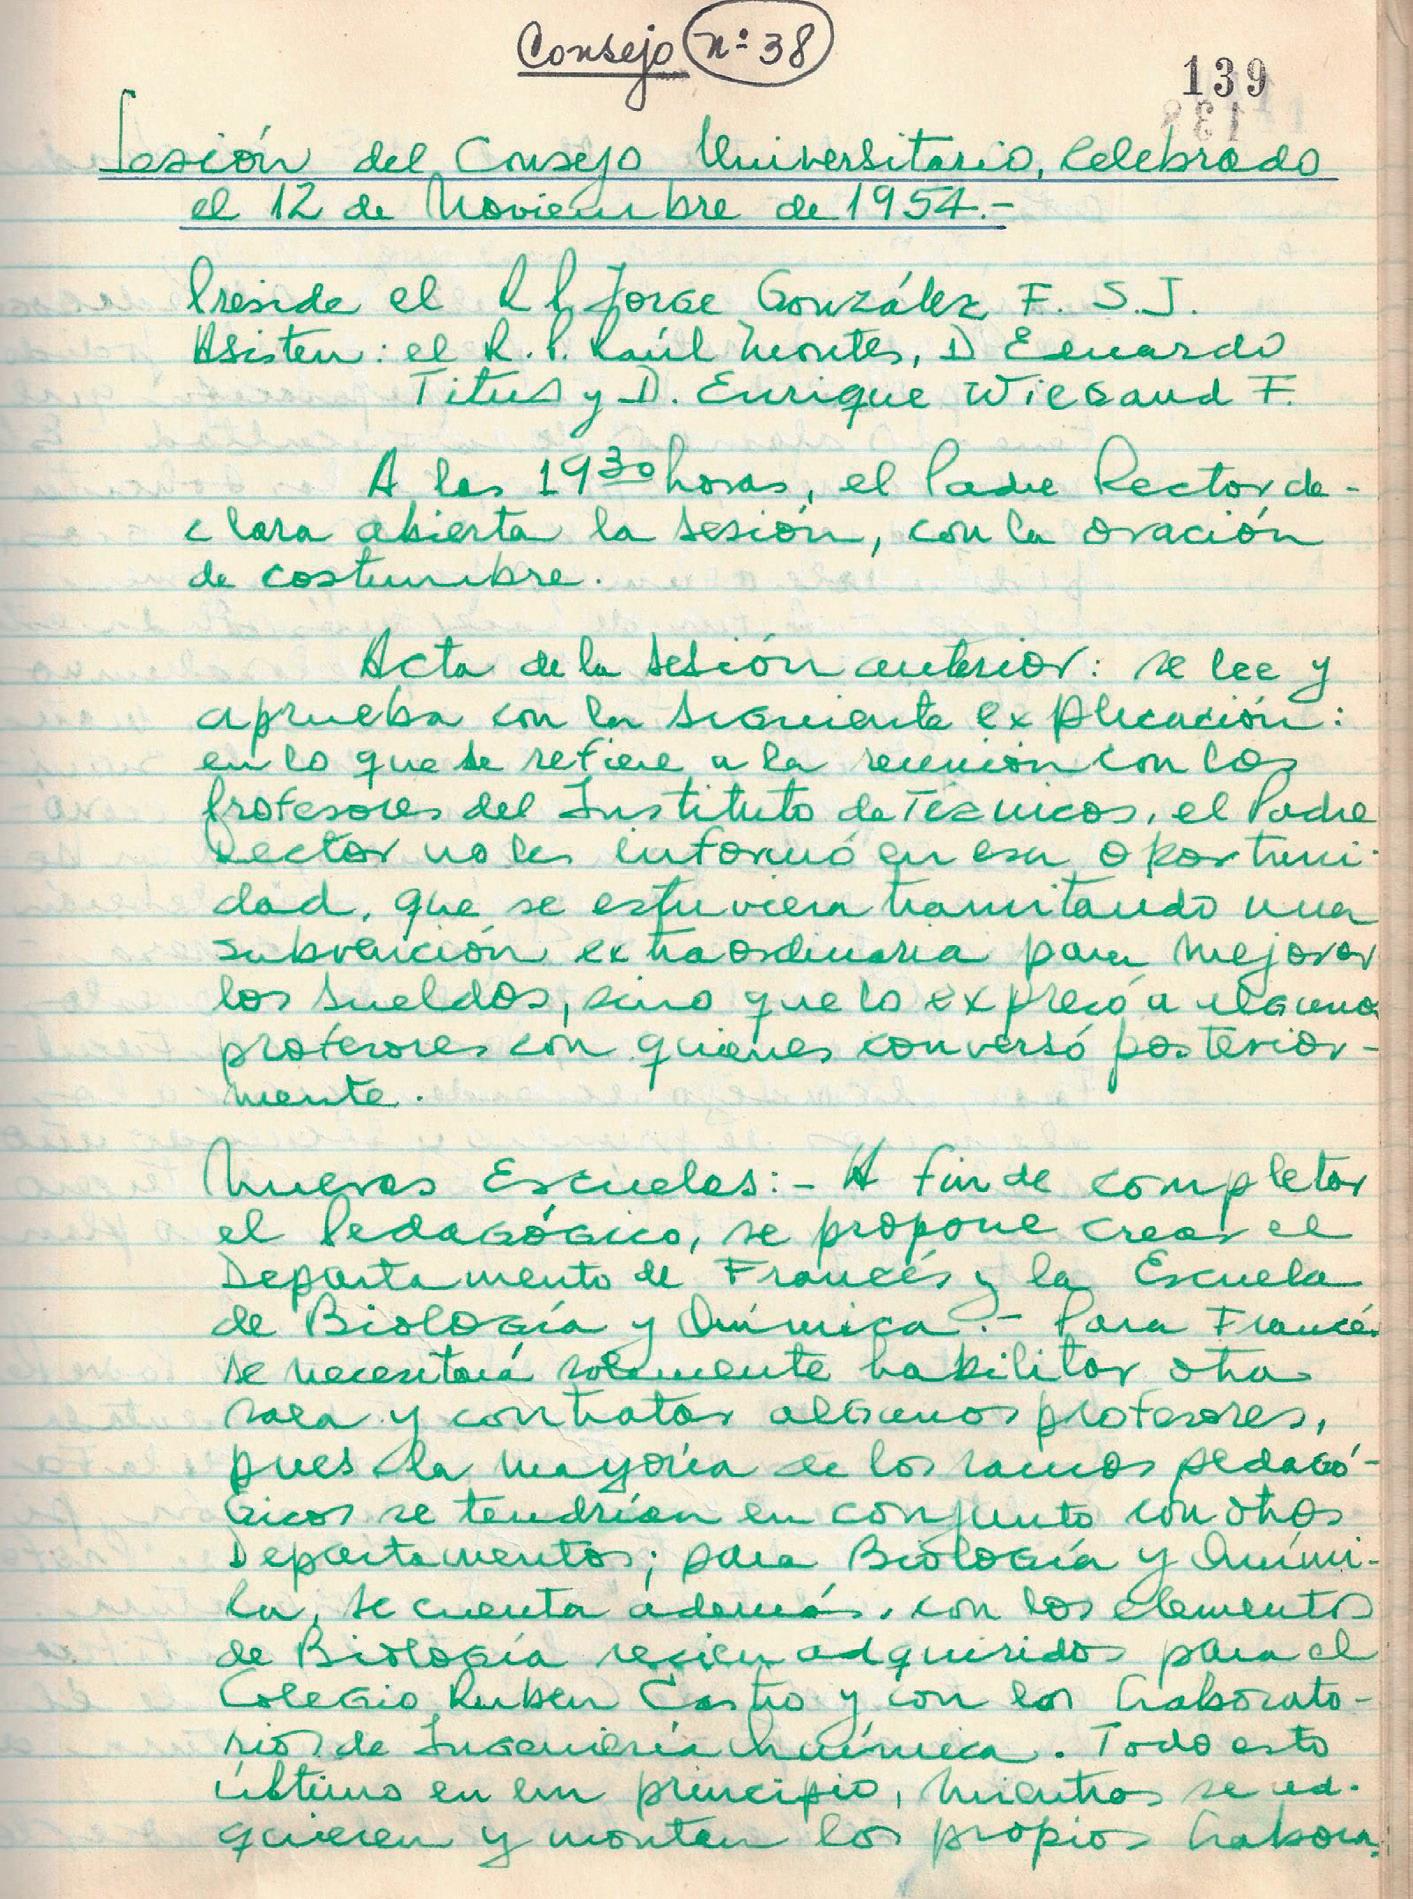 Consejo nº 38
139
Sesión del Consejo Universitario, celebrado
el 12 de Noviembre de 1954.-
Preside el R P Jorge González F. S.J.
Asisten: el R. P. Raúl Montes, D Eduardo
Titus y D. Enrique Wiegand F.
A las 19 30 horas, el Padre Rector de-
clara abierta la sesión, con la oración
de costumbre.
Acta de la sesión anterior: se lee y
aprueba con la siguiente explicación:
en lo que se refiere a la reunión con los
profesores del Instituto de Técnicos, el Padre
Rector no les informó en esa oportuni-
dad, que se estuviera tramitando una
subvención extraordinaria para mejorar
los sueldos, sino que lo expresó a algunos
profesores con quienes conversó posterior-
mente.
Nuevas Escuelas:- A fin de completar
el Pedagógico, se propone crear el
Departamento de Francés y la Escuela
de Biología y Química.- Para Francés
se necesitará solamente habilitar otra
sala y contratar algunos profesores,
pues la mayoría de los ramos pedagó-
gicos se tendrían en conjunto con otros
Departamentos; para Biología y Quími-
ca, se cuenta además, con los elementos
de Biología recien adquiridos para el
Colegio Ruben Castro y con los Laborato-
rios de Ingeniería Química. Todo esto
último en un principio, mientras se ad-
quieren y montan los propios Labora-